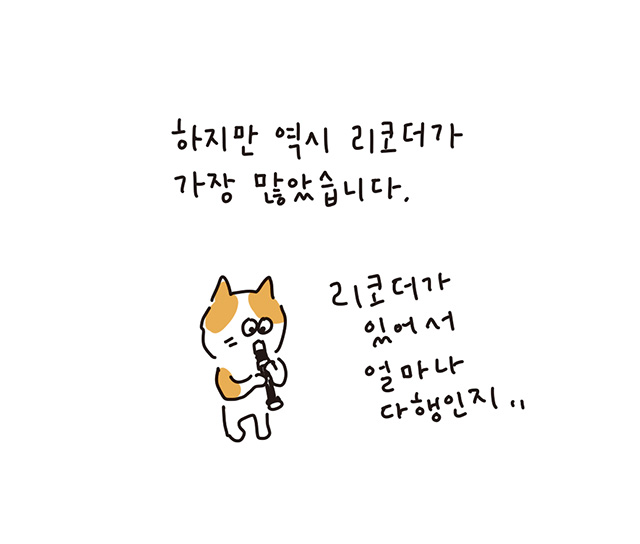 하지만 역시 리코더가
가장 많았습니다.
리코더가
있어서
얼마나
다행인지..